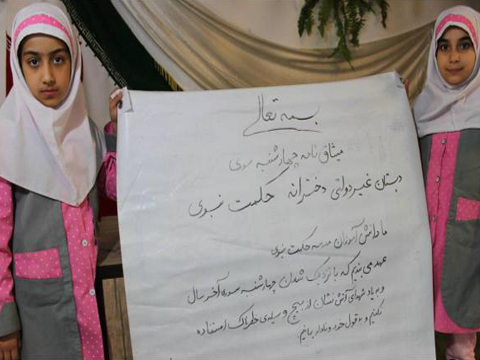 بسمه تعالی
میثاق نامه چهارشنبه سوری
دبستان غیر دولتی دخترانه حکمت نبوی
ما دانش آموزان مدرسه حکمت نبوی
عهد می بندیم که با نزدیک شدن چهارشنبه سوری آخر سال
و به یاد شهدای آتش نشان از هیچ وسیله ی خطرناک استفاده
نکنیم و به قول خود وفادار بمانیم